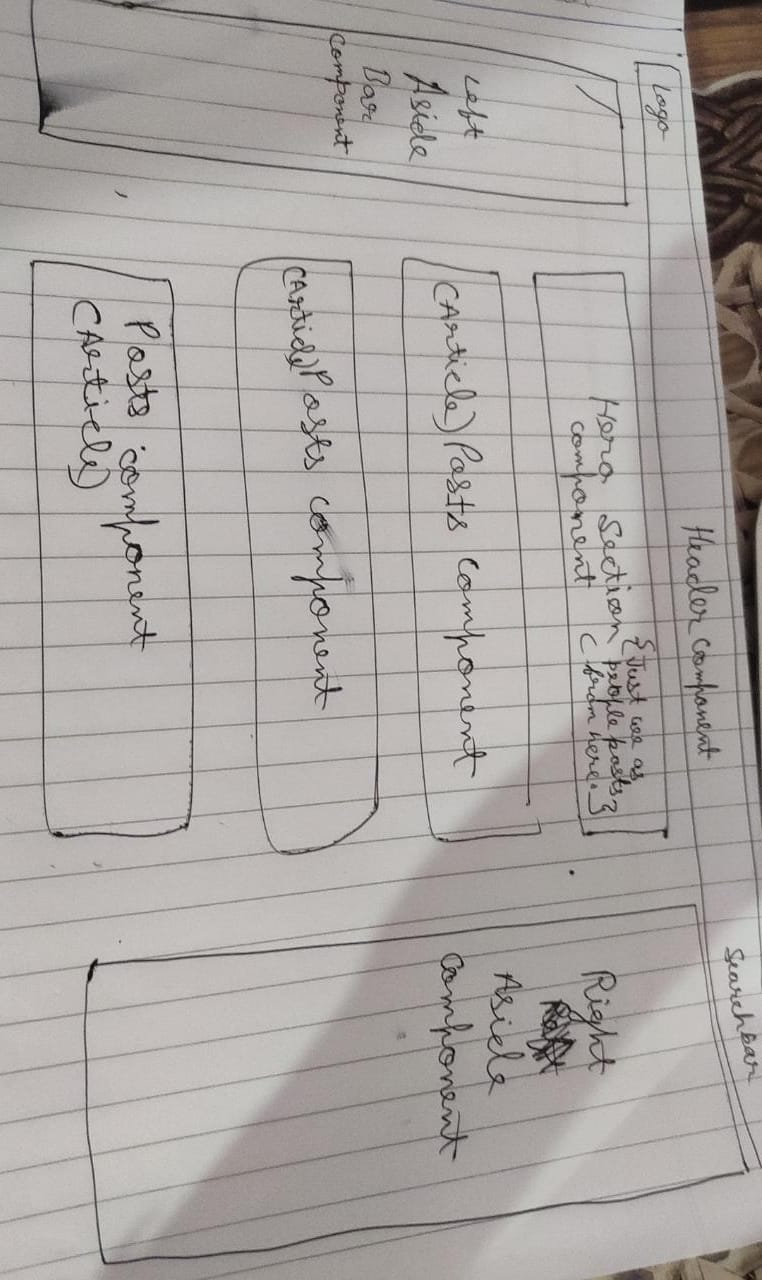 Logo
Header component
Searchbar
Left
Aside
Bar
component
Hero Section
component
{Just use as
people posts
from here.}
(Article) Posts component
(Article) Posts component
Posts component
(Article)
Right
Aside
component